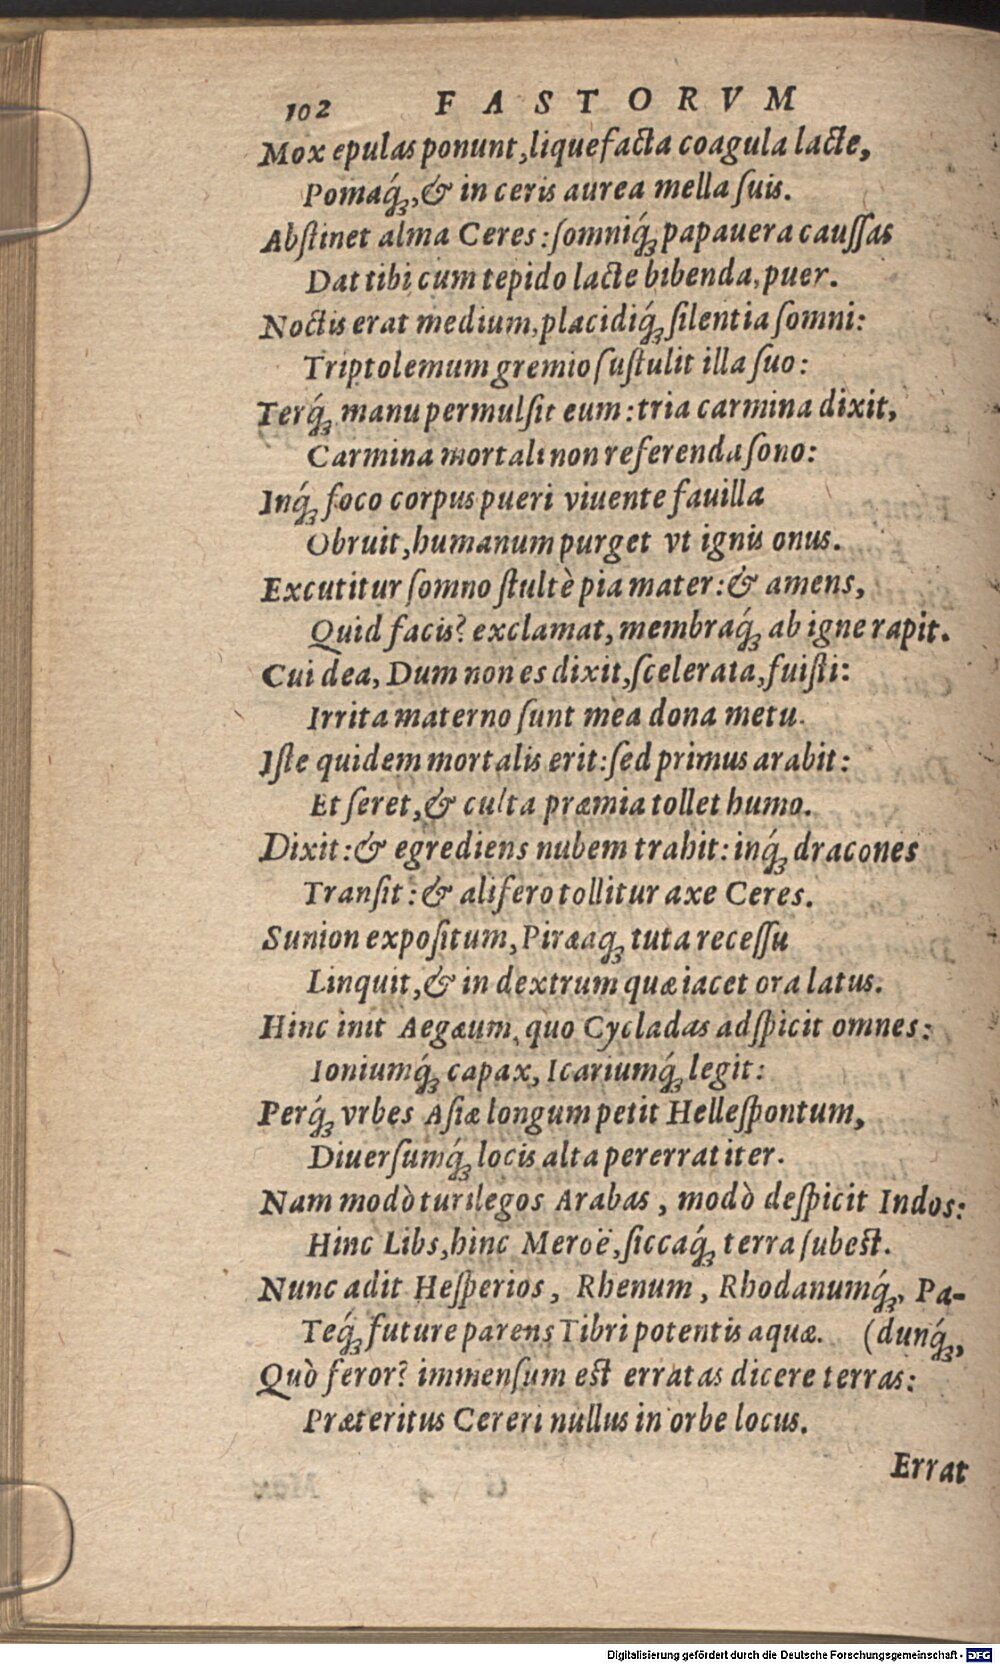 102 FASTORVM
Mox epulas ponunt, liquefacta coagula lacte,
Pomaq́ꝫ, & in ceris aurea mella ſuis.
Abſtinet alma Ceres: ſomniq́ꝫ papauera cauſſas
Dat tibi cum tepido lacte bibenda, puer.
Noctis erat medium, placidiq́ꝫ ſilentia ſomni:
Triptolemum gremio ſuſtulit illa ſuo:
Terq́ꝫ manu permulſit eum: tria carmina dixit,
Carmina mortali non referenda ſono:
Inq́ꝫ foco corpus pueri viuente fauilla
Obruit, humanum purget vt ignis onus.
Excutitur ſomno ſtultè pia mater: & amens,
Quid facis? exclamat, membraq́ꝫ ab igne rapit.
Cui dea, Dum non es dixit, ſcelerata, fuiſti:
Irrita materno ſunt mea dona metu.
Iſte quidem mortalis erit: ſed primus arabit:
Et ſeret, & culta præmia tollet humo.
Dixit: & egrediens nubem trahit: inq́ꝫ dracones
Tranſit: & alifero tollitur axe Ceres.
Sunion expoſitum, Piræaqꝫ tuta receſſu
Linquit, & in dextrum quæ iacet ora latus.
Hinc init Aegæum, quo Cycladas adſpicit omnes:
Ioniumq́ꝫ capax, Icariumq́ꝫ legit:
Perq́ꝫ vrbes Aſiæ longum petit Helleſpontum,
Diuerſumq́ꝫ locis alta pererrat iter.
Nam modò turilegos Arabas, modò deſpicit Indos:
Hinc Libs, hinc Meroë, ſiccaq́ꝫ terra ſubeſt.
Nunc adit Heſperios, Rhenum, Rhodanumq́ꝫ, Pa-
Teq́ꝫ future parens Tibri potentis aquæ. (dunq́ꝫ,
Quò feror? immenſum eſt erratas dicere terras:
Præteritus Cereri nullus in orbe locus.
Errat
Digitalisierung gefördert durch die Deutsche Forschungsgemeinschaft - DFG